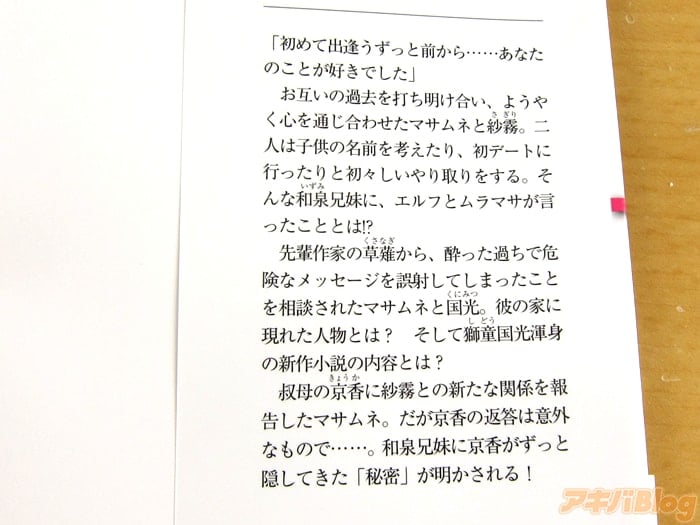 「初めて出逢うずっと前から……あなた
のことが好きでした」
お互いの過去を打ち明け合い、ようや
く心を通じ合わせたマサムネと紗霧。二
人は子供の名前を考えたり、初デートに
行ったりと初々しいやり取りをする。そ
んな和泉兄妹に、エルフとムラマサが言
ったこととは!?
先輩作家の草薙から、酔った過ちで危
険なメッセージを誤射してしまったこと
を相談されたマサムネと国光。彼の家に
現れた人物とは？　そして獅童国光渾身
の新作小説の内容とは？
叔母の京香に紗霧との新たな関係を報
告したマサムネ。だが京香の返答は意外
なもので……。和泉兄妹に京香がずっと
隠してきた「秘密」が明かされる！
アキバBlog